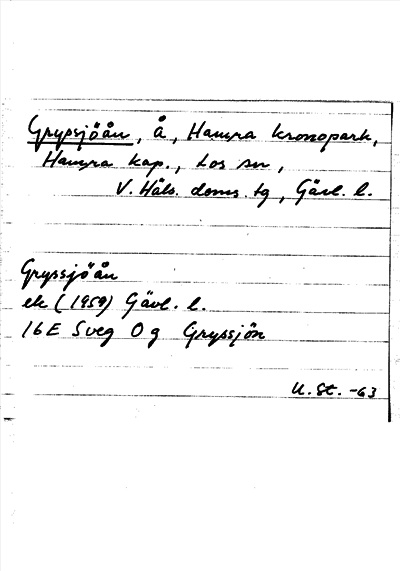 Grypsjöån, å, Hamra kronopark,
Hamra kap., Los sn,
V. Häls. doms. tg, Gävl. l.
Gryssjöån
ek (1959) Gävl. l.
16E Sveg 0g Gryssjön
U. St. -63